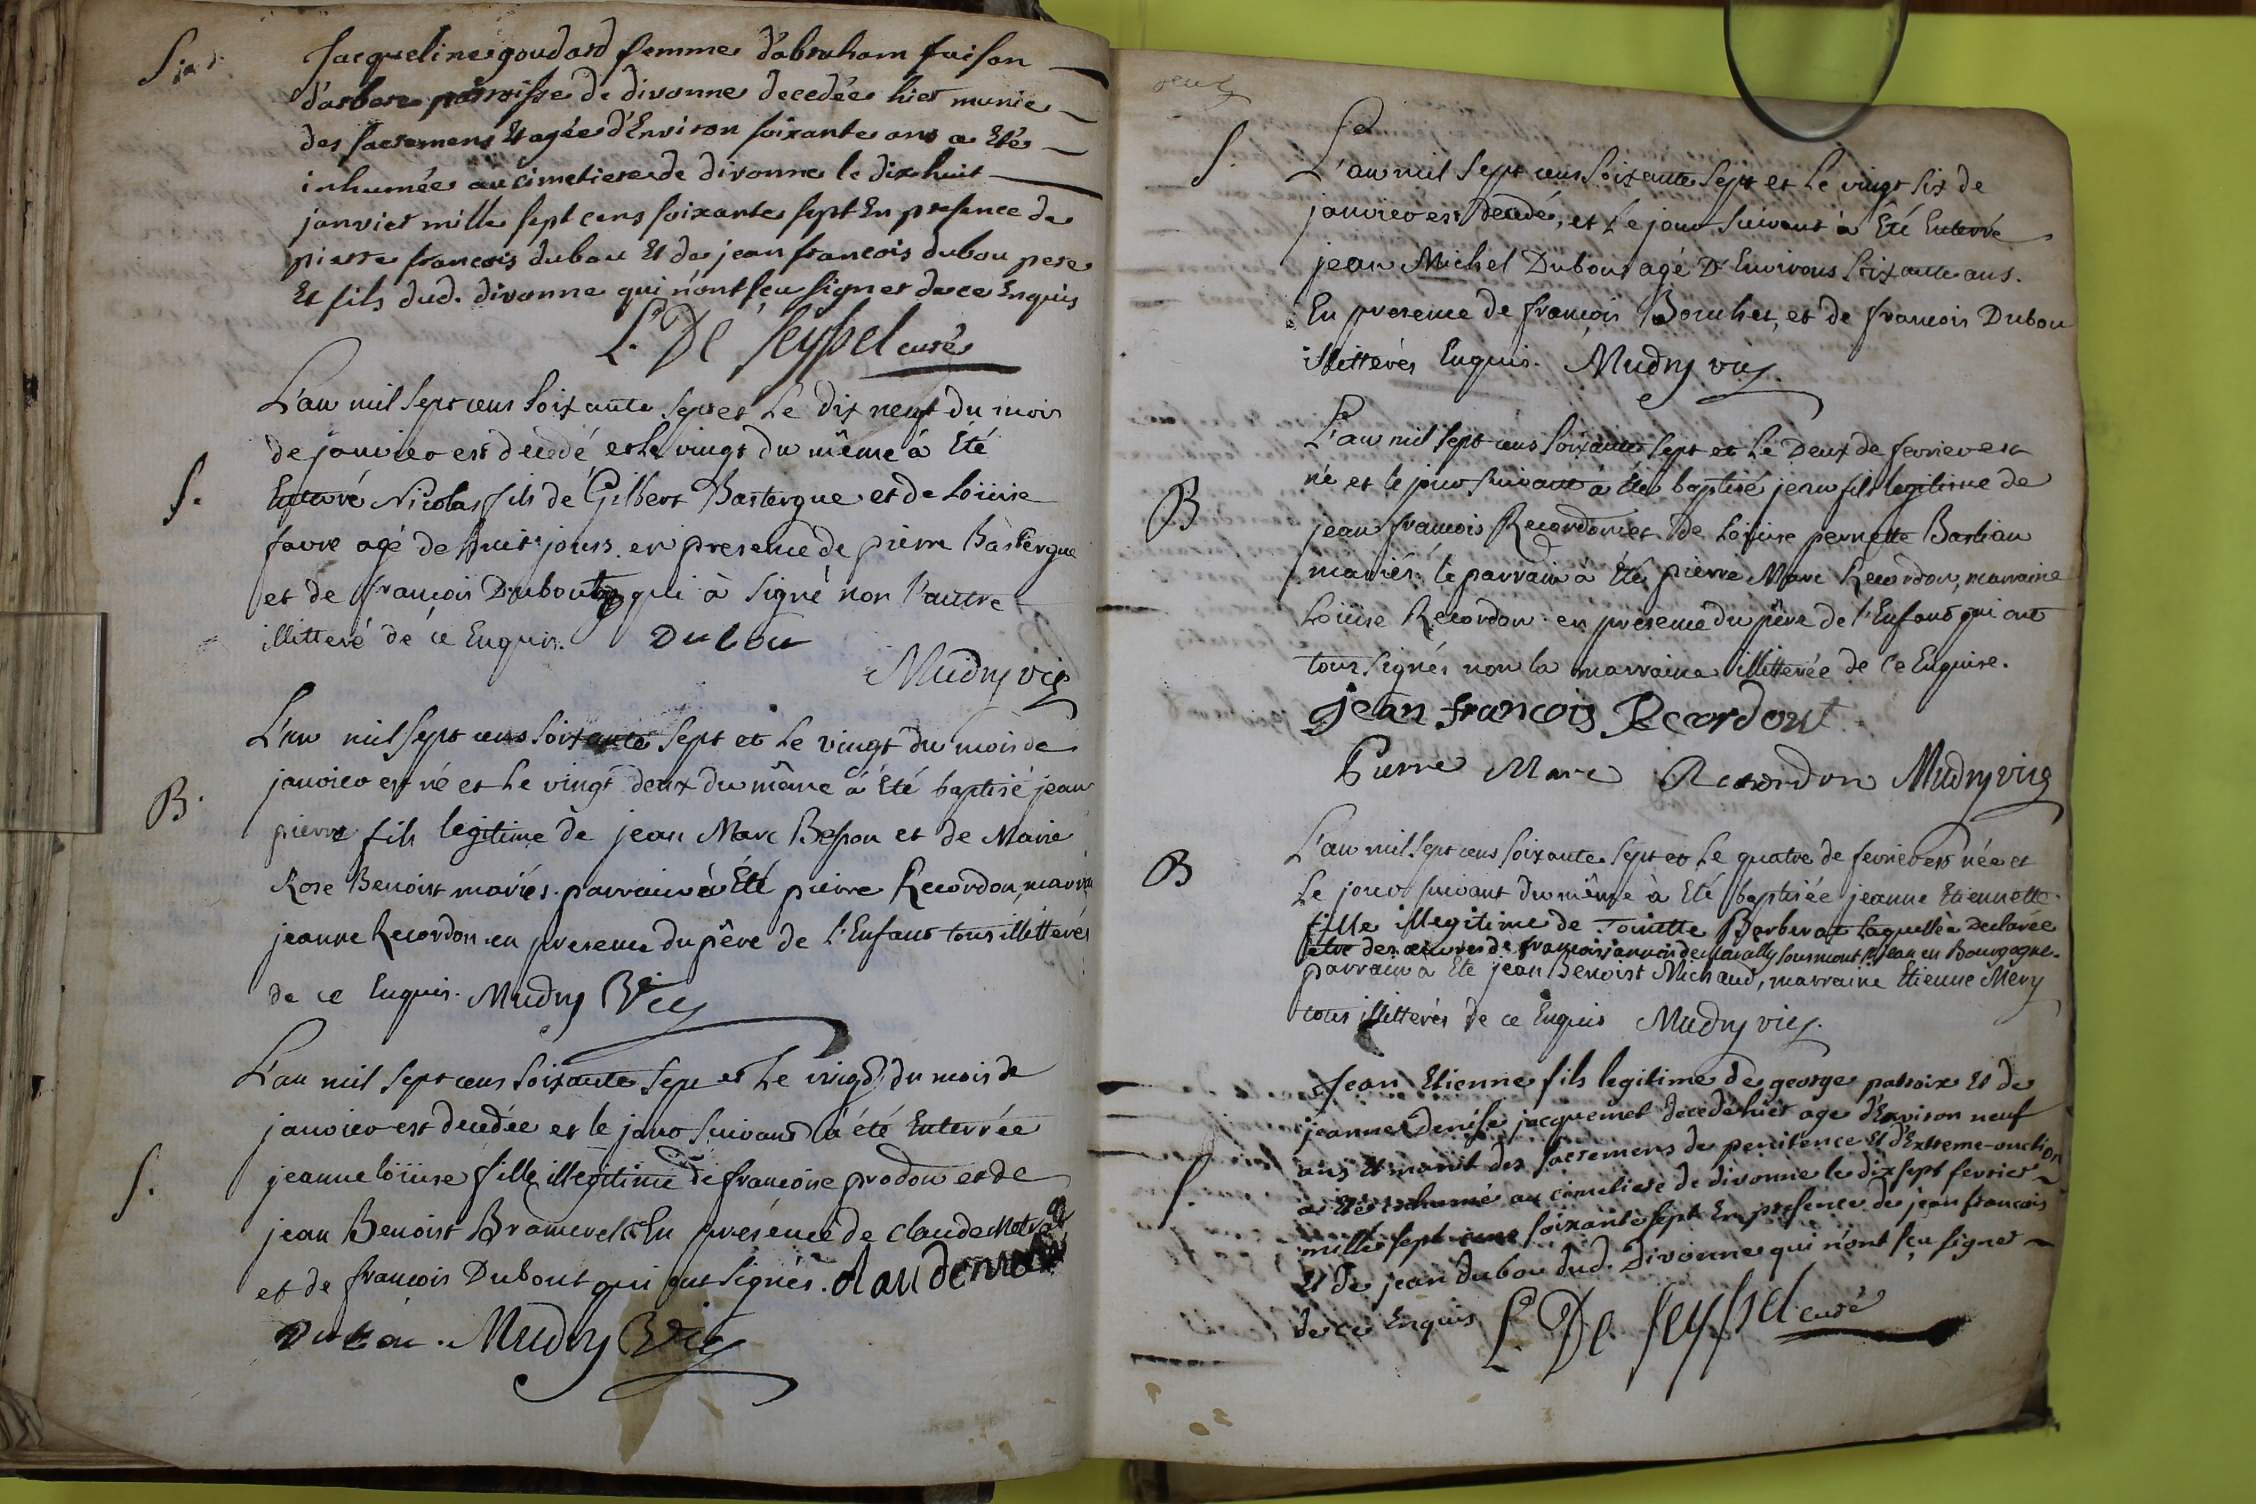 S.
Jacqueline goudard femme d'abraham fuison
d'arbere parroisse de divonne decedée hier munie
des sacremens et agée d'Environ soixante ans a Eté
inhumée au cimetiere de divonne le dix huit
janvier mille sept cens soixante sept En presence de
pierre francois dubou Et de jean francois dubou pere
Et fils dud. divonne qui n'ont sçu signer de ce Enquis
L. De Seyssel curé
L'an mil sept cens soixante sept et Le dix neuf du mois
de janvier est decedé et le vingt du même à Eté
S.
Enterré Nicolas fils de Gilbert Bastergue et de Loüise
favre agé de huit jours. en presence de pierre Bastergue
et de françois Dubout qui à signé non l'autre
illitteré de ce Enquis. Dubou
Mudry vic
L'an mil sept cens soixante sept et Le vingt du mois de
janvier est né et Le vingt deux du même à Eté baptisé jean
B.
pierre fils legitime de jean Marc Besson et de Marie
Rose Benoist mariés. parrain à Eté pierre Recordon, marrai
jeanne Recordon en presence du pêre de L'Enfant tous illitterés
de ce Enquis. Mudry Vic
L'an mil sept cens soixante sept et Le vingt du mois de
janvier est decedée et le jour suivant à été Enterrée
S.
jeanne loüise fille illegitime de francoise prodon et de
jean Benoist En présence de claude
et de françois Dubout qui ont signés. claude
Dubou. Mudry Vic
S.
L'an mil sept cens soixante sept et Le vingt six de
janvier est decedé, et Le jour suivant à Eté Enterré
jean Michel Dubout agé D'Environs soixante ans.
En presence de françois Bouchet, et de francois Dubou
illitterés Enquis. Mudry vic
L'an mil sept cens soixante sept et Le Deux de fevrier est
B
né et le jour suivant à Eté baptisé jean fils legitime de
jean françois Recordon et de Loüise pernette Bastian
mariés. le parrain à Eté pierre Marc Recordon, marraine
Loüise Recordon en presence du pêre de l'Enfant qui ont
tous signés non la marraine illitterée de ce Enquise.
jean francois Recordont
Pierre Marc Recordon Mudry vic
L'an mil sept cens soixante sept et Le quatre de fevrier est née et
B
Le jour suivant du même à Eté baptisée jeanne Etiennette
fille illegitime de Toinette Barberat laquelle à Declarée
être des œuvres de françois en Bourgogne.
parrain à Eté jean Benoist Michaud, marraine Etienne Mery
tous illitterés de ce Enquis Mudry vic.
Jean Etienne fils legitime de george patroix Et de
jeanne Denise jacqueinet decedé hier agé d'Environ neuf
ans Et munit des sacremens de penitence Et d'Extreme-onction
S
a Eté inhumé au cimetiere de divonne le dix sept fevrier
mille sept cens soixante sept En presence de jean francois
Et de jean dubou dud. Divonne qui n'ont sçu signer
de ce Enquis L. De Seyssel curé